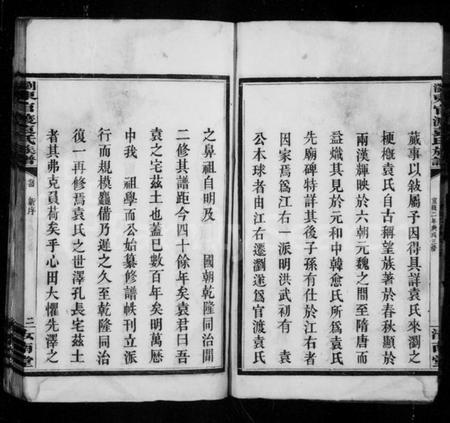 蕆事以敍屬予因得具詳袁氏來瀏之
梗槪袁氏自古稱望族著於春秋顯於
兩漢輝映於六朝元魏之間至隋唐而
益熾其見於元和中韓愈氏所爲袁氏
先廟碑特詳其後子孫有仕於江右者
因家焉爲江右一派明洪武初有 袁
公本球者由江右遷瀏遂爲官渡袁氏
之鼻祖自明及 國朝乾隆同治間
二修其譜距今四十餘年矣袁君曰吾
袁之宅茲土也蓋已數百年矣明萬曆
中我 祖學而公始纂修譜帙刊立派
行而規模麤備乃遲之久至乾隆同治
復一再修焉袁氏之世澤孔長宅茲土
者其弗克負荷矣乎心田大懼先澤之
瀏東官渡袁氏族譜
新序
二
汝南堂